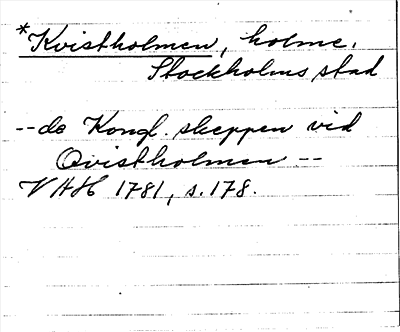 *Kvistholmen, holme,
Stockholms stad
--de Kongl. skeppen vid
Qvistholmen --
VAH 1781, s.178.